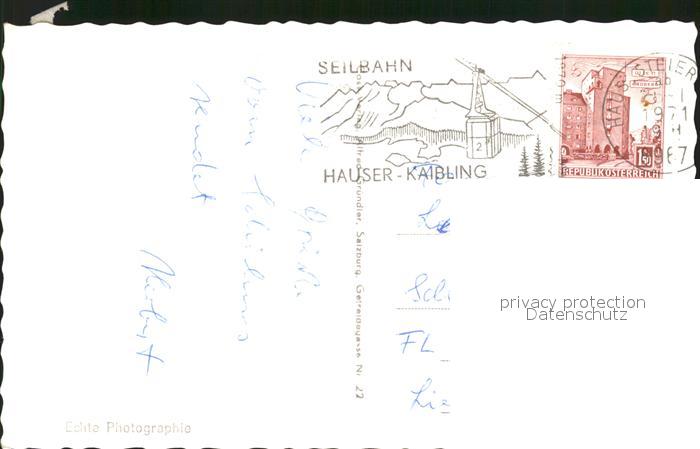 SEILBAHN
2
HAUSER-KAIBLING
1971
REPUBLIK ÖSTERREICH
1.50
Viele Grüße
vom Schikurs
sendet
Herbert
Alfred Gründler, Salzburg, Getreidegasse Nr. 22
FL
privacy protection
Datenschutz
Echte Photographie